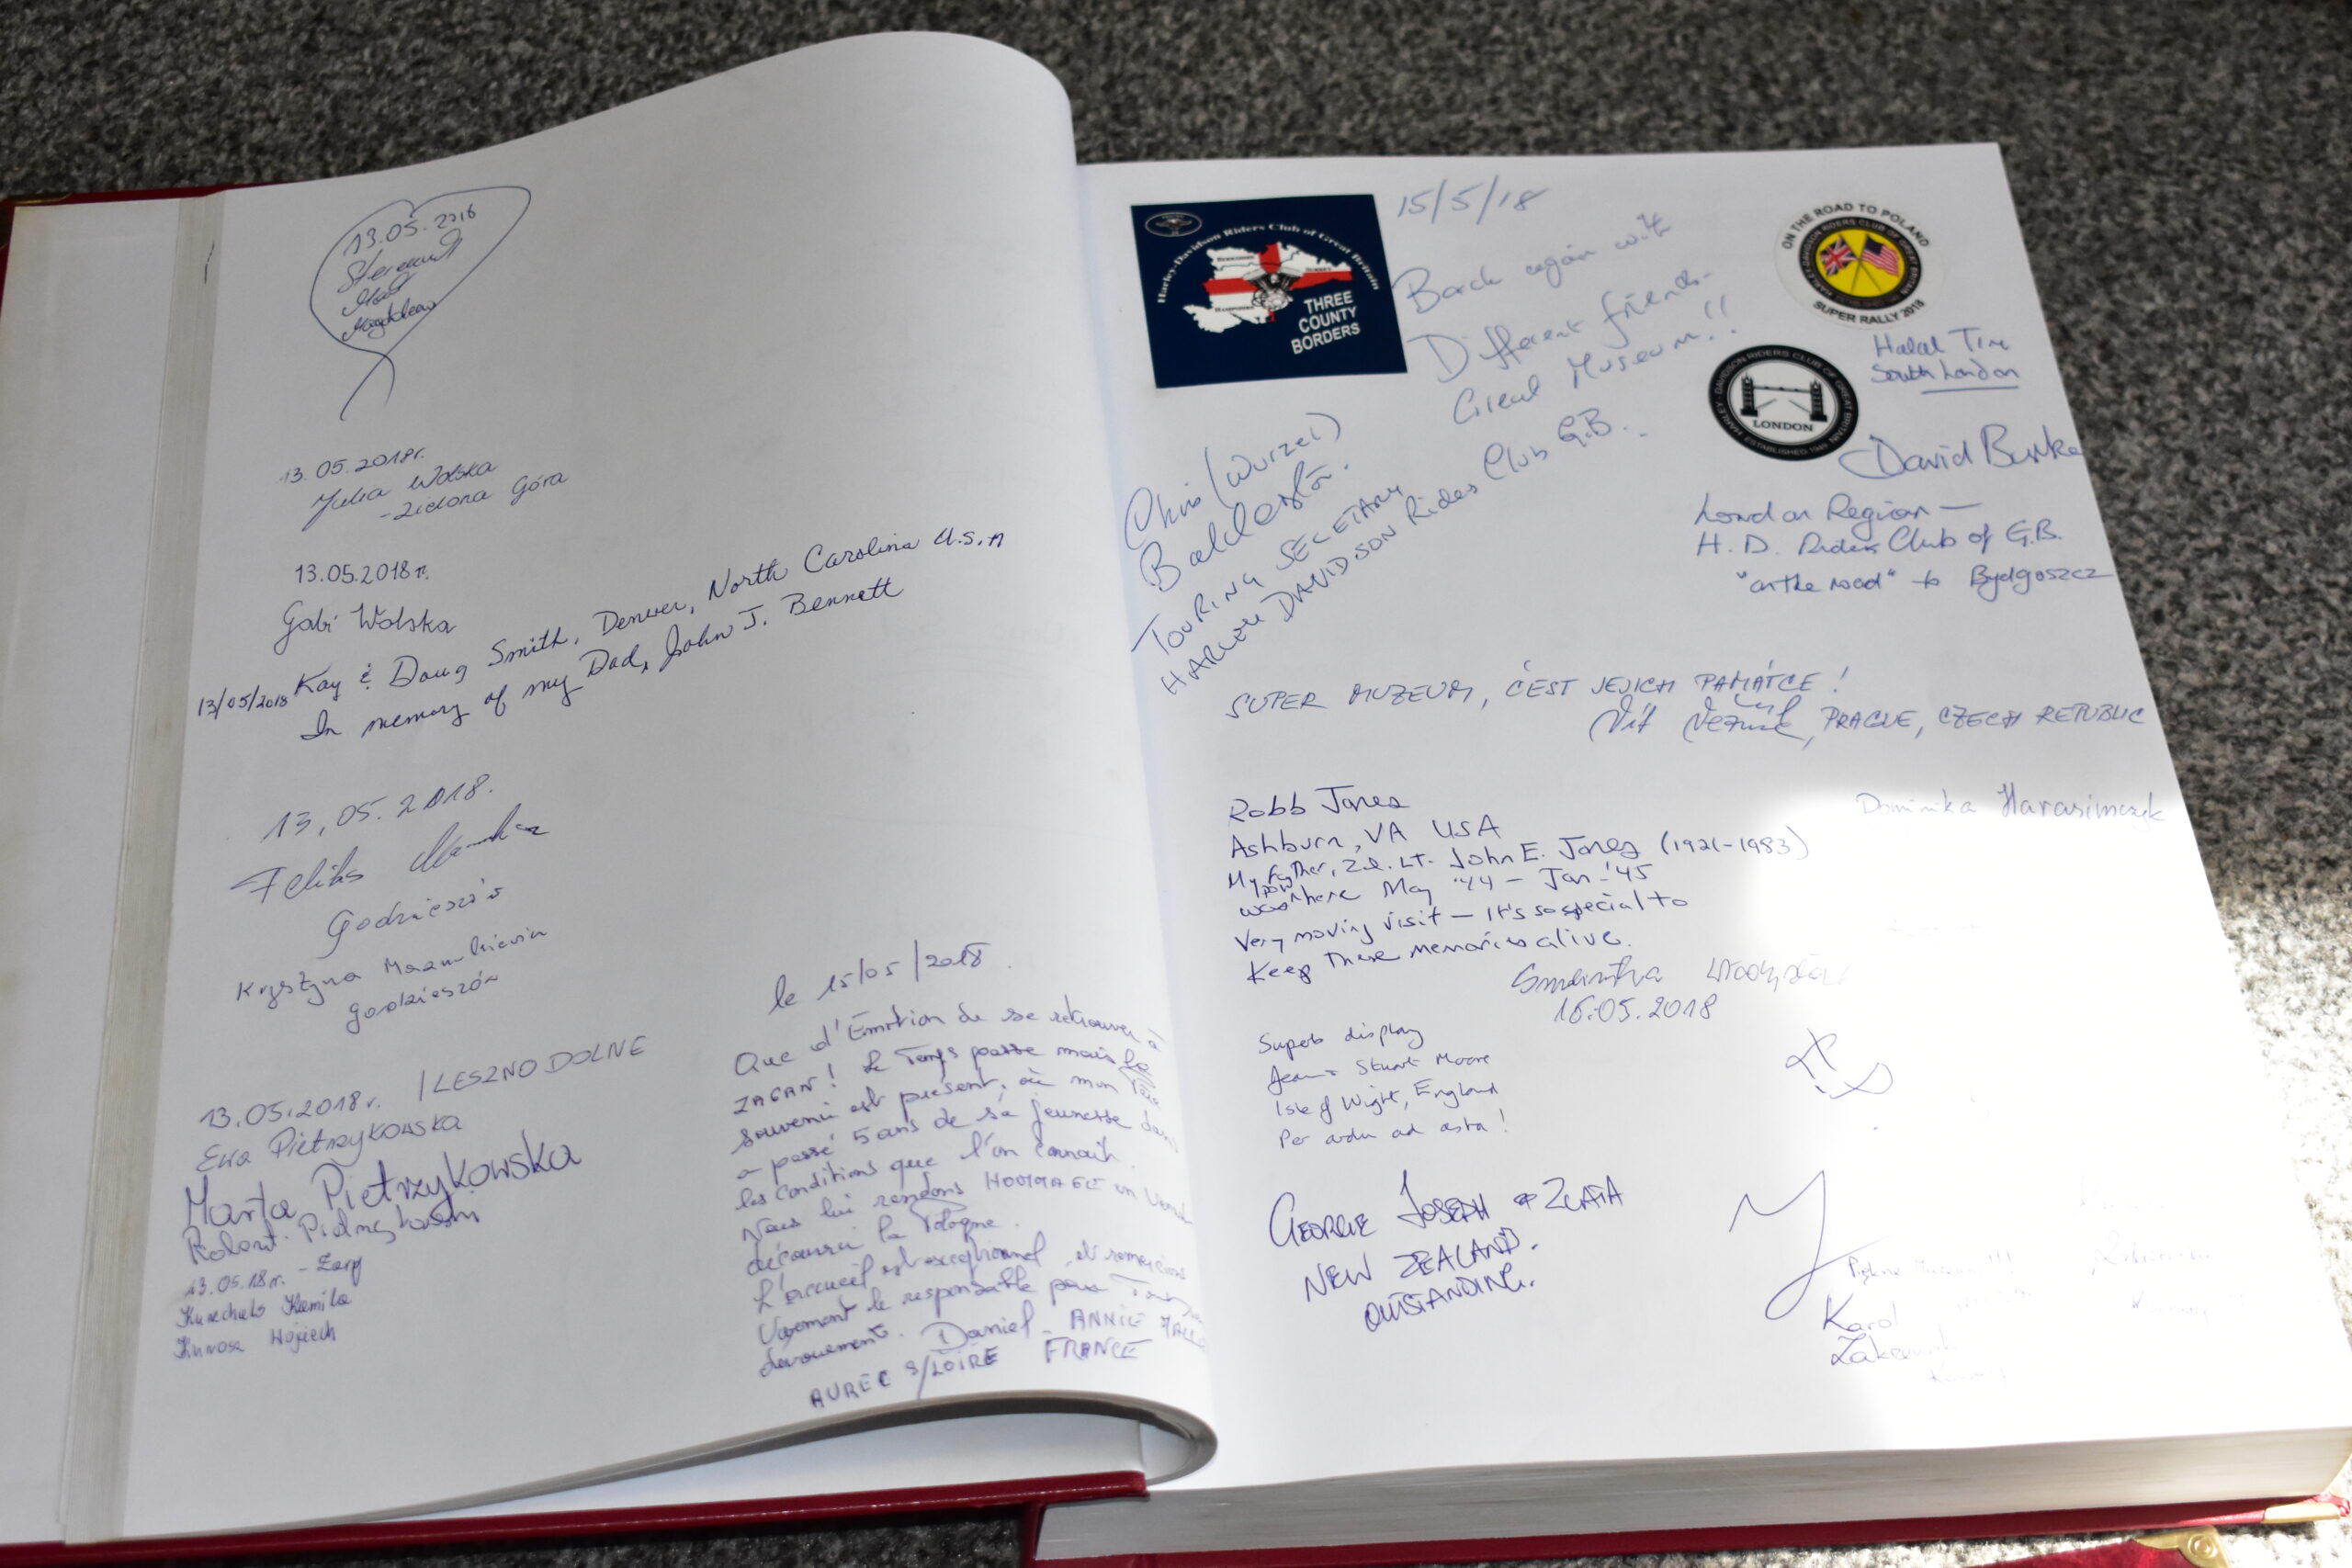 13.05.2018
Magdalena
13.05.2018r.
Julia Wolska
- Zielona Góra
13.05.2018r.
Gabi Wolska
13/05/2018 Kay & Doug Smith, Denver, North Carolina U.S.A
In memory of my Dad, John J. Bennett
13,05.2018.
Feliks
Godzieszów
Krystyna
Godzieszów
13.05.2018r. /LESZNO DOLNE
Ewa Pietrzykowska
Marta Pietrzykowska
Robert Pietrzykowski
13.05.18r. - Żary
Kamila
Wojciech
le 15/05/2018.
Que d'Émotion de se retrouver à
ZAGAN! Le Temps passe mais le
souvenir est présent, où mon Père
a passé 5 ans de sa jeunesse dans
les conditions que l'on connait.
Nous lui rendons HOMMAGE en
découvrir la Pologne.
L'accueil est exceptionnel, et remercions
Vivement le responsable pour
dévouement. Daniel - ANNIE
AUREC S/LOIRE FRANCE
Harley-Davidson Riders Club of Great Britain
BERKSHIRE
SURREY
HAMPSHIRE
THREE
COUNTY
BORDERS
15/5/18
Back again with
Different friends-
Great Museum!!
Chris (Wurzel)
TOURING SECETARY
HARLEY DAVIDSON Riders Club G.B.
ON THE ROAD TO POLAND
HARLEY-DAVIDSON RIDERS CLUB OF GREAT BRITAIN
SUPER RALLY 2018
Halal Tim
South London
HARLEY-DAVIDSON RIDERS CLUB OF GREAT BRITAIN
LONDON
ESTABLISHED 1949
David Burke
London Region -
H.D. Riders Club of G.B.
"on the road" to Bydgoszcz
SUPER MUZEUM, ČEST JEJICH PAMÁTCE!
Vít, PRAGUE, CZECH REPUBLIC
Robb Jones
Ashburn, VA USA
My father, 2d. LT. John E. Jones (1921-1983)
was POW here May '44 - Jan '45
Very moving visit - It's so special to
keep these memories alive.
Dominika Harasimczyk
16.05.2018
Superb display
Jean & Stuart Moore
Isle of Wight, England
Per ardu ad astra!
GEORGE JOSEPH & ZLATA
NEW ZEALAND.
OUTSTANDING.
Karol